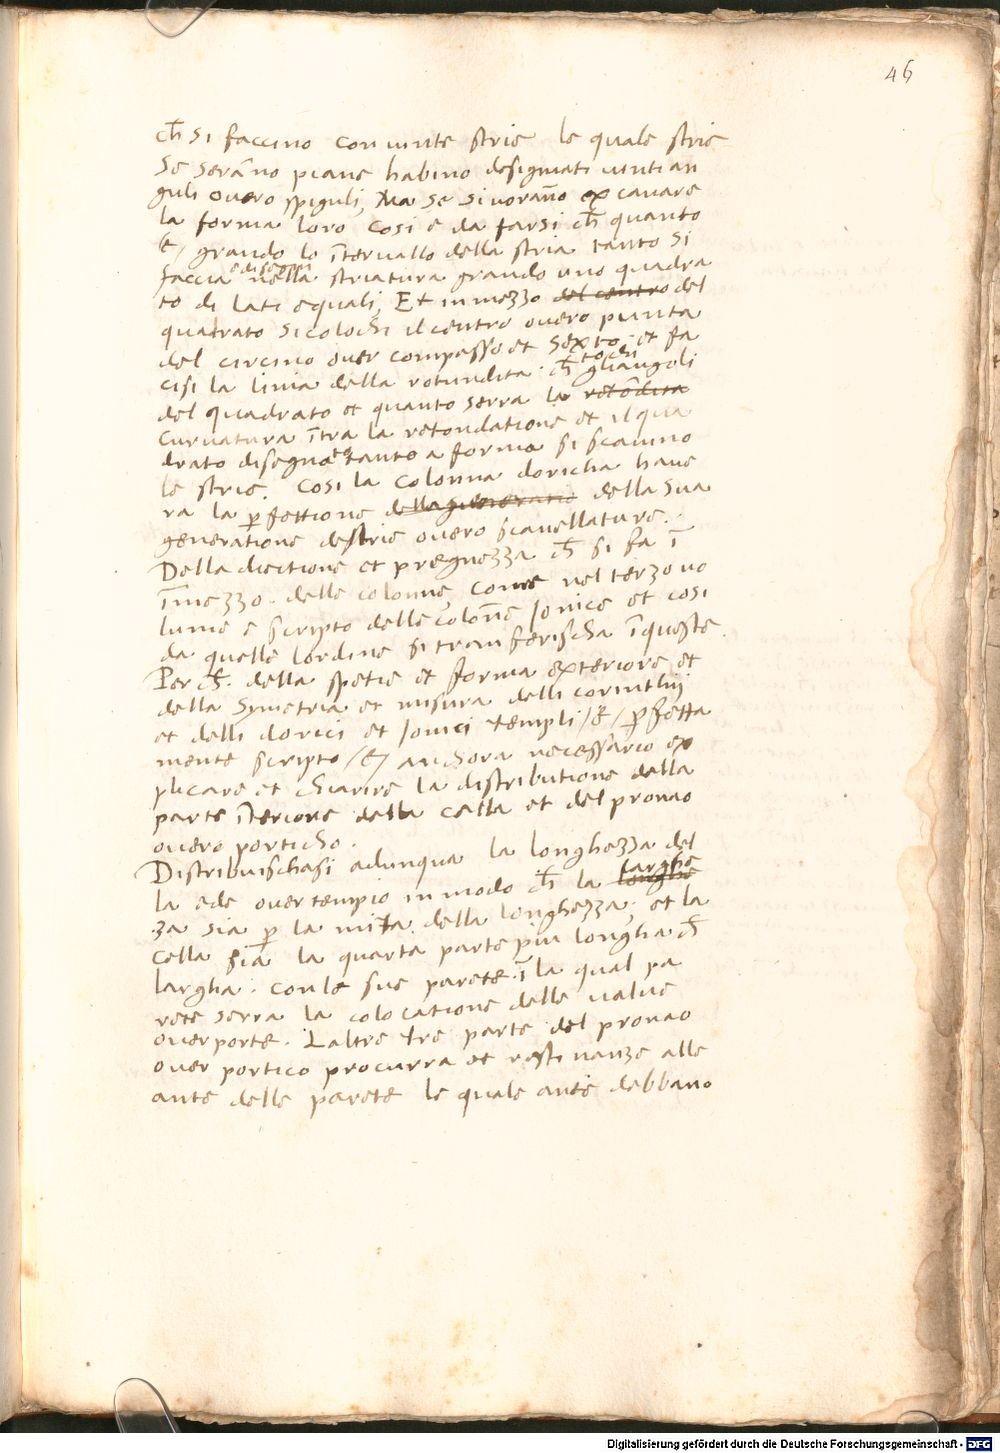 46
ch̄ si faccino con vinte strie le quale strie
se serāno piane habino designati vinti an
guli overo spiguli, Ma se si vorāno ex cavare
la forma loro cosi e da farsi ch̄ quanto
e/ grando lo ītervallo della stria tanto si
faccia nella striatura grando uno quadra
to di lati equali, Et in mezzo del centro del
quadrato si colochi il centro overo punta
del circino over compasso et sexto, et fa
cisi la linia della rotundita. ch̄ tochi gli anguli
del quadrato et quanto serra la retōdita
curvatura ītra la retondatione et il qua
drato disegnato tanto a forma si scavino
le strie. Cosi la colonna doricha have
ra la ꝑfettione della della sua
generatione de strie overo scavellature.
Della diectione et pregnezza ch̄ si fa ī
īmezzo. delle colonne, come nel terzo vo
lume e scripto delle colōne Jonice et cosi
da quelle lordine si transferischa ī queste.
Per ch̄. della spetie et forma exteriore et
della Symetria et misura delli corinthii
et delli dorici et Jonici templi /e/ ꝑfetta
mente scripto /e/ anchora necessario ex
plicare et chiarire la distributione della
parte īteriore della cella et del pronao
overo porticho.
Distribuischasi adunqua la longhezza del
la ede over tempio in modo ch̄ la longhe larghe
za sia ꝑ la mita della longhezza; et la
cella sia la quarta parte piu longha ch̄
largha. con le sue parete. ī la qual pa
rete serra la colocatione delle valve
over porte. Laltre tre parte del pronao
over portico procurra et resti nanze alle
ante delle parete le quale ante debbano
Digitalisierung gefördert durch die Deutsche Forschungsgemeinschaft - DFG